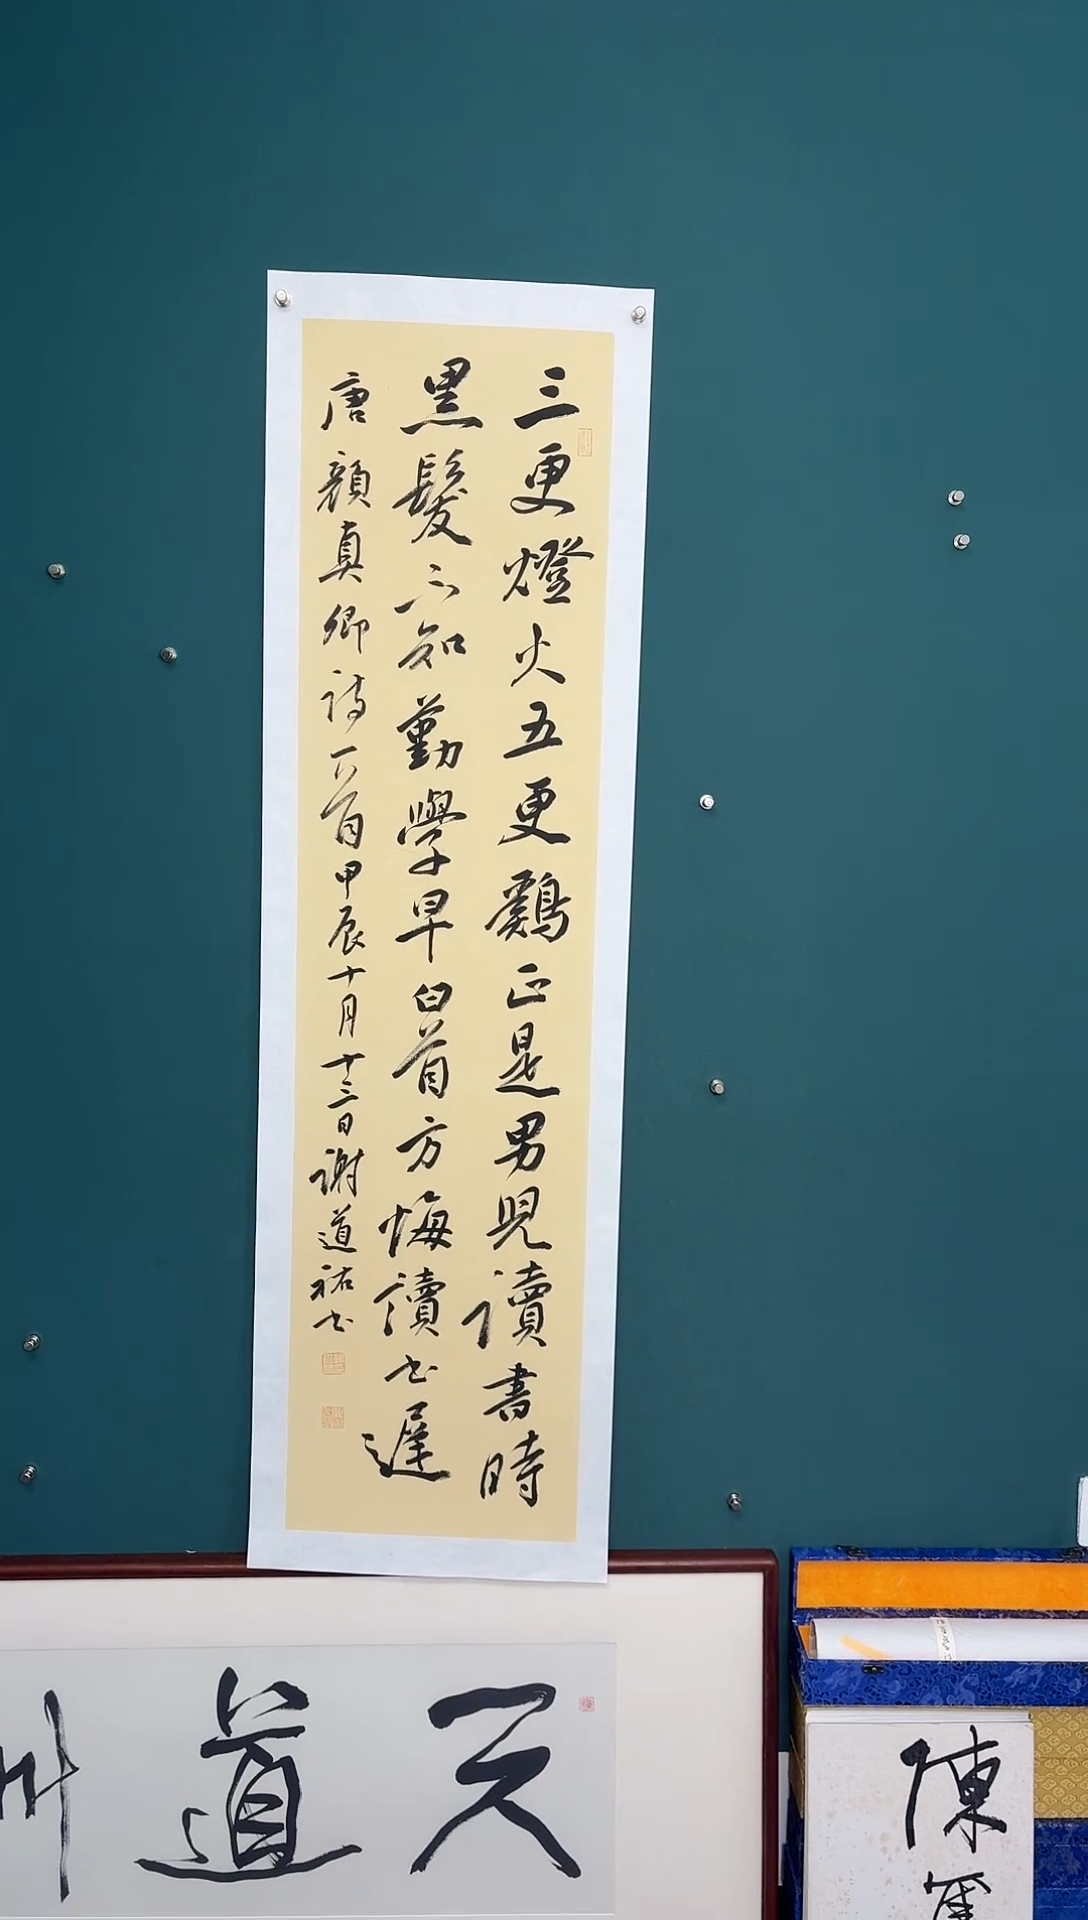 三更燈火五更鷄正是男兒讀書時
黑髮不知勤學早白首方悔讀书遲
唐顏真卿詩一首甲辰十月十三日謝道祐书
天道
陳